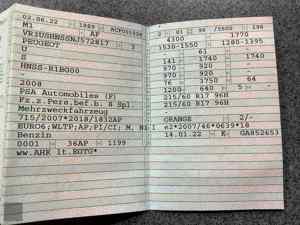 02.06.22 1889 ACF
M1 AF
VR3USHNSSNJ572817 3
PEUGEOT
U
S
HNSS-R1B000
-
2008
PSA Automobiles (F)
Fz.z.Pers.bef.b. 8 Spl
Mehrzweckfahrzeug
715/2007*2018/1832AP
EURO6;WLTP;AP;PI/CI; M, N1 I
Benzin
0001 36AP 1199
ww.AHK lt.EGTG*
96 /5500 196
4300 1770
1530-1550 1280-1395
- 61 -
141 1740 1740
970 920 -
970 920 -
76 3750 64
1200 640 5 -
215/60 R17 96H
215/60 R17 96H
-
ORANGE 2/-
e2*2007/46*0639*18
14.01.22 K GA852653